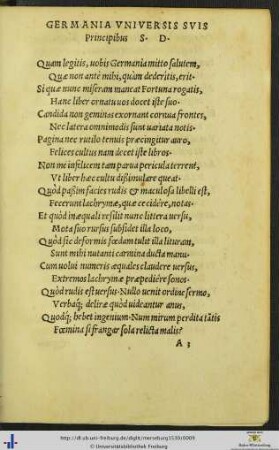 GERMANIA VNIVERSIS SVIS
Principibus S. D.
Quam legitis, uobis Germania mitto salutem,
Quæ non ante mihi, quàm dederitis, erit.
Si quæ nunc miseram maneat Fortuna rogatis,
Hanc liber ornatu uos docet iste suo.
Candida non geminas exornant cornua frontes,
Nec latera omnimodis sunt uariata notis.
Pagina nec rutilo tenuis præcingitur auro,
Felices cultus nam decet iste libros.
Non me infelicem tam parua pericula terrent,
Vt liber hæc cultu dissimulare queat.
Quòd passim facies rudis & maculosa libelli est,
Fecerunt lachrymæ, quæ cecidêre, notas.
Et quòd inæquali resilit nunc litera uersu,
Mota suo rursus subsidet illa loco,
Quòd sic deformis fœdam tulit illa lituram,
Sunt mihi nutanti carmina ducta manu.
Cum uolui numeris æquales claudere uersus,
Extremos lachrymæ præpediêre sonos.
Quòd rudis est uersus. Nullo uenit ordine sermo,
Verbaq; deliræ quòd uideantur anus,
Quodq; hebet ingenium. Num mirum perdita tātis
Fœmina si frangor sola relicta malis?
A 3
http://dl.ub.uni-freiburg.de/diglit/
© Universitätsbibliothek Freiburg